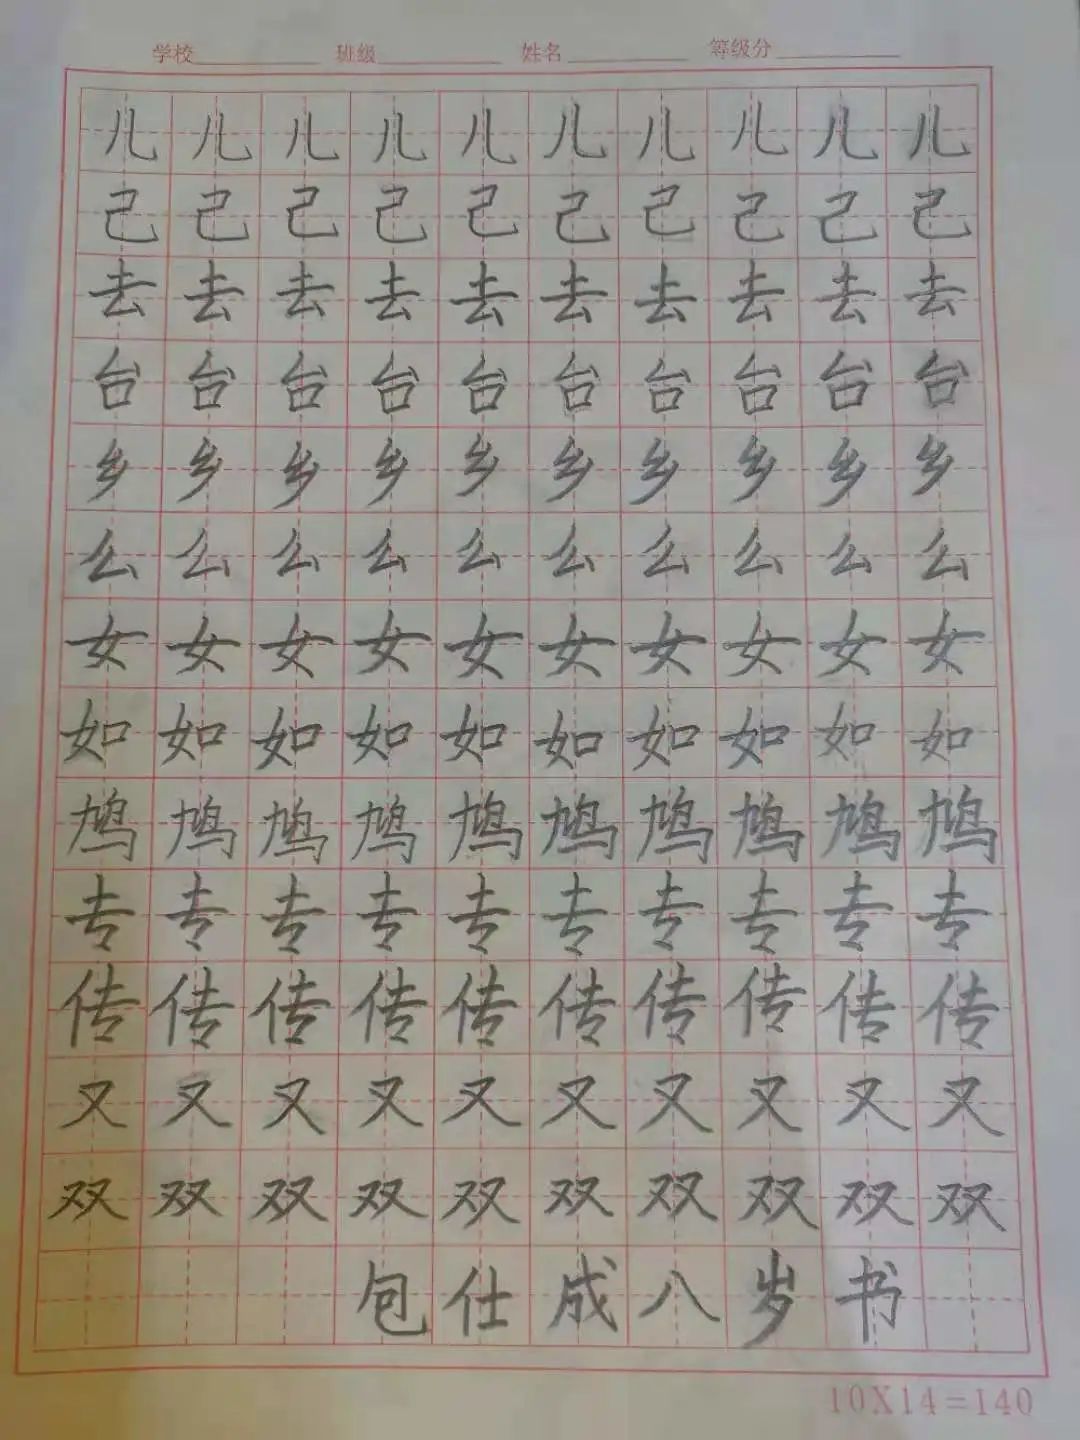 学校 班级 姓名 等级分
儿儿儿儿儿儿儿儿儿儿
己己己己己己己己己己
去去去去去去去去去去
台台台台台台台台台台
乡乡乡乡乡乡乡乡乡乡
么么么么么么么么么么
女女女女女女女女女女
如如如如如如如如如如
鸠鸠鸠鸠鸠鸠鸠鸠鸠鸠
专专专专专专专专专专
传传传传传传传传传传
又又又又又又又又又又
双双双双双双双双双双
包仕成八岁书
10X14=140